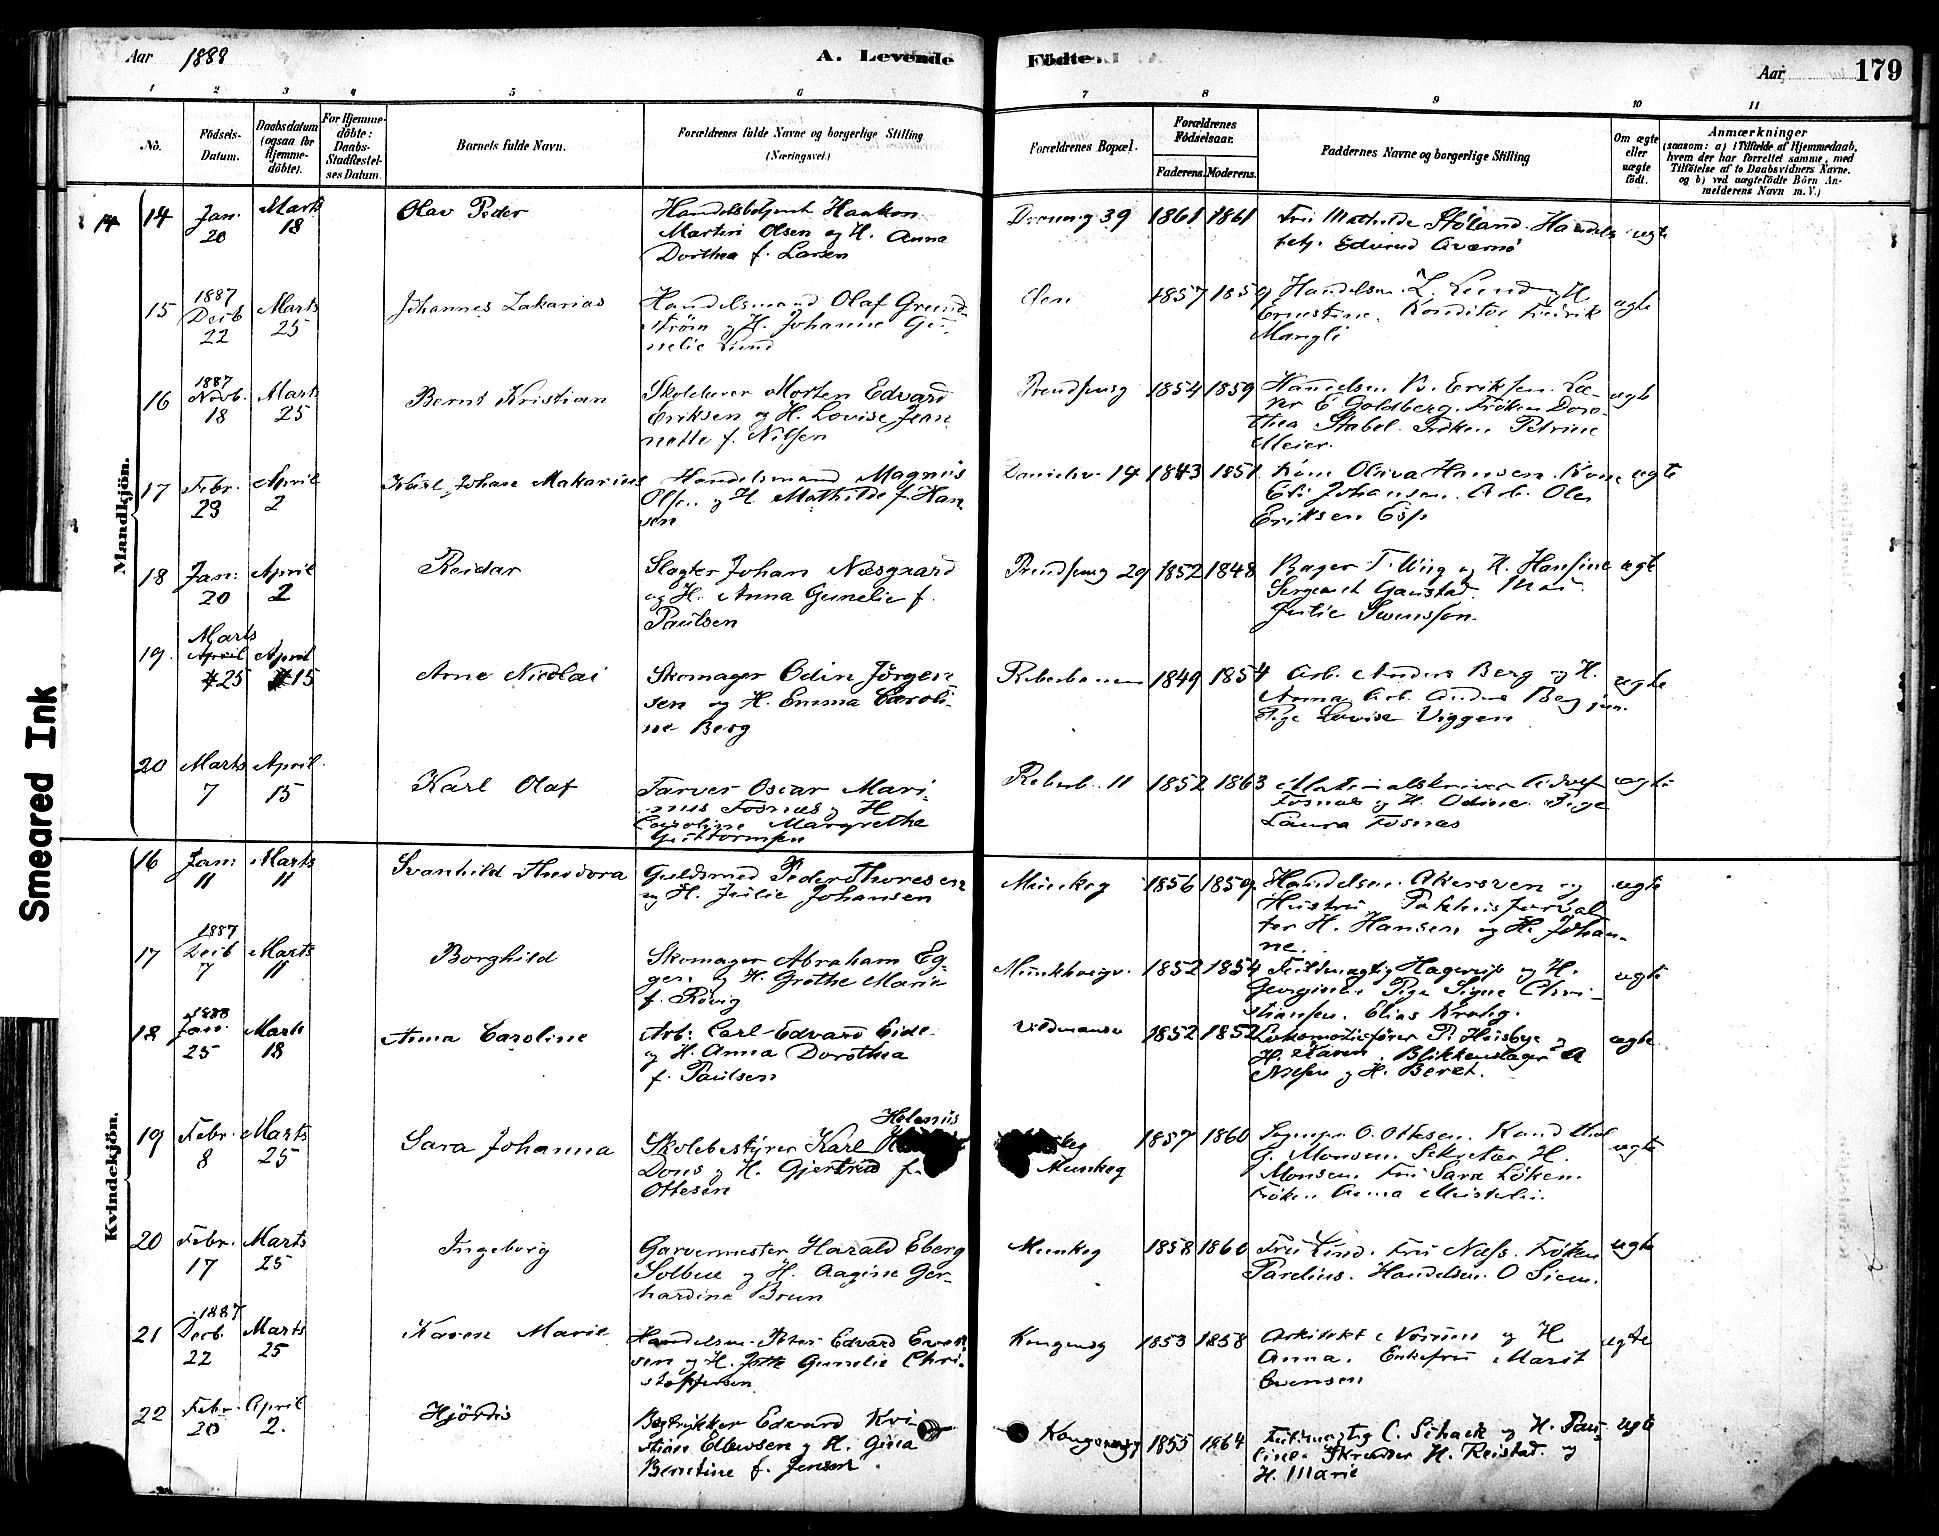 Aar 1888
A. Levende
Födte
Aar
179
1 2 3 4 5 6 7 8 9 10 11
No.
Födsels-
Datum.
Daabsdatum
(ogsaa for
Hjemme-
döbte).
For Hjemme-
döbte:
Daabs-
Stadfæstel-
ses Datum.
Barnets fulde Navn.
Forældrenes fulde Navne og borgerlige Stilling
(Næringsvei.)
Forældrenes Bopæl.
Forældrenes
Födselsaar.
Faderens. Moderens.
Faddernes Navne og borgerlige Stilling
Om ægte
eller
uægte
födt.
Anmærkninger
(saasom: a) i Tilfælde af Hjemmedaab,
hvem der har forrettet samme, med
Tilföielse af to Daabsvidners Navne.
og b) ved uægtefödte Börn An-
melderens Navn m. V.)
Mandkjön.
14 14 Jan. 20 Marts 18
Olav Peder
Handelsbetjent Haakon
Martin Olsen og H. Anna
Dorthea f. Larsen
Dronng 39 1861 1861
Fru Mathilde Höland. Handels
betj. Edvard
ægte
15 1887 Decb 22 Marts 25
Johannes Zakarias
Handelsmand Olaf Grund
ström og H. Johanne Gu
nelie Lund
Ilen 1857 1859
Handelsm. L. Lund og H.
Ernestine. Konditor Fredrik
Mangli
ægte
16 1887 Novb. 18 Marts 25
Bernt Kristian
Skolelærer Morten Edvard
Eriksen og H. Lovise Jean
nette f. Nilsen
Prindsensg 1854 1859
Handelsm B. Eriksen. Læ-
rer E Goldberg. Fröken Doro-
thea Stabel. Fröken Petrine
Meier.
ægte
17 Febr. 23 April 2
Karl Johan Makarius
Handelsmand Magnus
Olsen og H. Mathilde f. Han
sen
Danielsv. 14 1843 1851
Kone Oliva Hansen. Kone
Johansen. Arb. Ole
Eriksen Esp
ægte
18 Jan: 20 April 2
Reidar
Slagter Johan Næsgaard
og H. Anna Gunelie f.
Paulsen
Prindsensg 29 1852 1848
Bager T. Wiig og H. Hansine
Sergeant Gaustad.
Julie Svensson.
ægte
19. Marts April 25 April 15
Arne Nicolai
Skomager Odin Jörgen
sen og H. Emma Caroli-
ne Berg
Reberbanen 1849 1854
Arb. Anders Berg og H.
Anna Arb. Anders Berg jun.
Pige Lovise Viggen
ægte
20 Marts 7 April 15
Karl Olaf
Farver Oscar Mari-
nus Fosnæs og H
Caroline Margrethe
Guttormsen
Reberb. 11 1852 1863
Materialskriver Adolf
Fosnæs og H. Odine. Pige
Laura Fosnæs
ægte
Kvindekjön.
16 Jan: 11 Marts 11
Svanhild Theodora
Guldsmed Peder Thoresen
og H. Julie Johansen
Munkeg 1856 1859
Handelsm. Akersven og
Hustru Pakhusforval
ter H. Hansen og H. Johan-
ne.
ægte
17 1887 Decb 7 Marts 11
Borghild
Skomager Abraham Eg-
gen og H. Grethe Marie
f. Rövig
1852 1854
Fuldmægtig Hagerup og H.
Georgine. Pige Signe Chri-
stiansen. Elias Krohg.
ægte
18 1888 Jan. 25 Marts 18
Anna Caroline
Arb: Carl Edvard Eide
og H. Anna Dorothea
f. Paulsen
1852 1852
Lokomotivförer P. Huisbye og
H. Karen. Blikkenslager A
Nilsen og H. Beret.
ægte
19 Febr. 8 Marts 25
Sara Johanna
Helenus
Skolebestyrer Karl
Dons og H. Gjertrud f.
Ottesen
Munkeg 1857 1860
O. Ottesen. Kand
G. Monsen. Sekretær H.
Monsen. Fru Sara Löken.
Fröken Anna
ægte
20 Febr. 17 Marts 25
Ingeborg
Garvermester Harald Eberg
Solbue og H. Aagine Ger-
hardine Brun
Munkeg 1858 1860
Fru Lind. Fru Næss. Fröken
Parelius. Handelsm. O Siem.
ægte
21 1887 Decb. 22 Marts 25
Karen Marie
Handelsm. Peter Edvard Evert
sen og H. Gunelie Chri-
stoffersen
Kongensg 1853 1858
Arkitekt og H
Anna. Enkefru Marit
Evensen
ægte
22 Febr. 20 April 2.
Hjördis
Bogtrykker Edvard Kri
stian Ellewsen og H. Gina
Berntine f. Jensen
Kongensg 1855 1864
Fuldmægtig C. Schack og H. Pau-
line. Skrædder H. Reistad. og
H. Marie
ægte
Smeared Ink